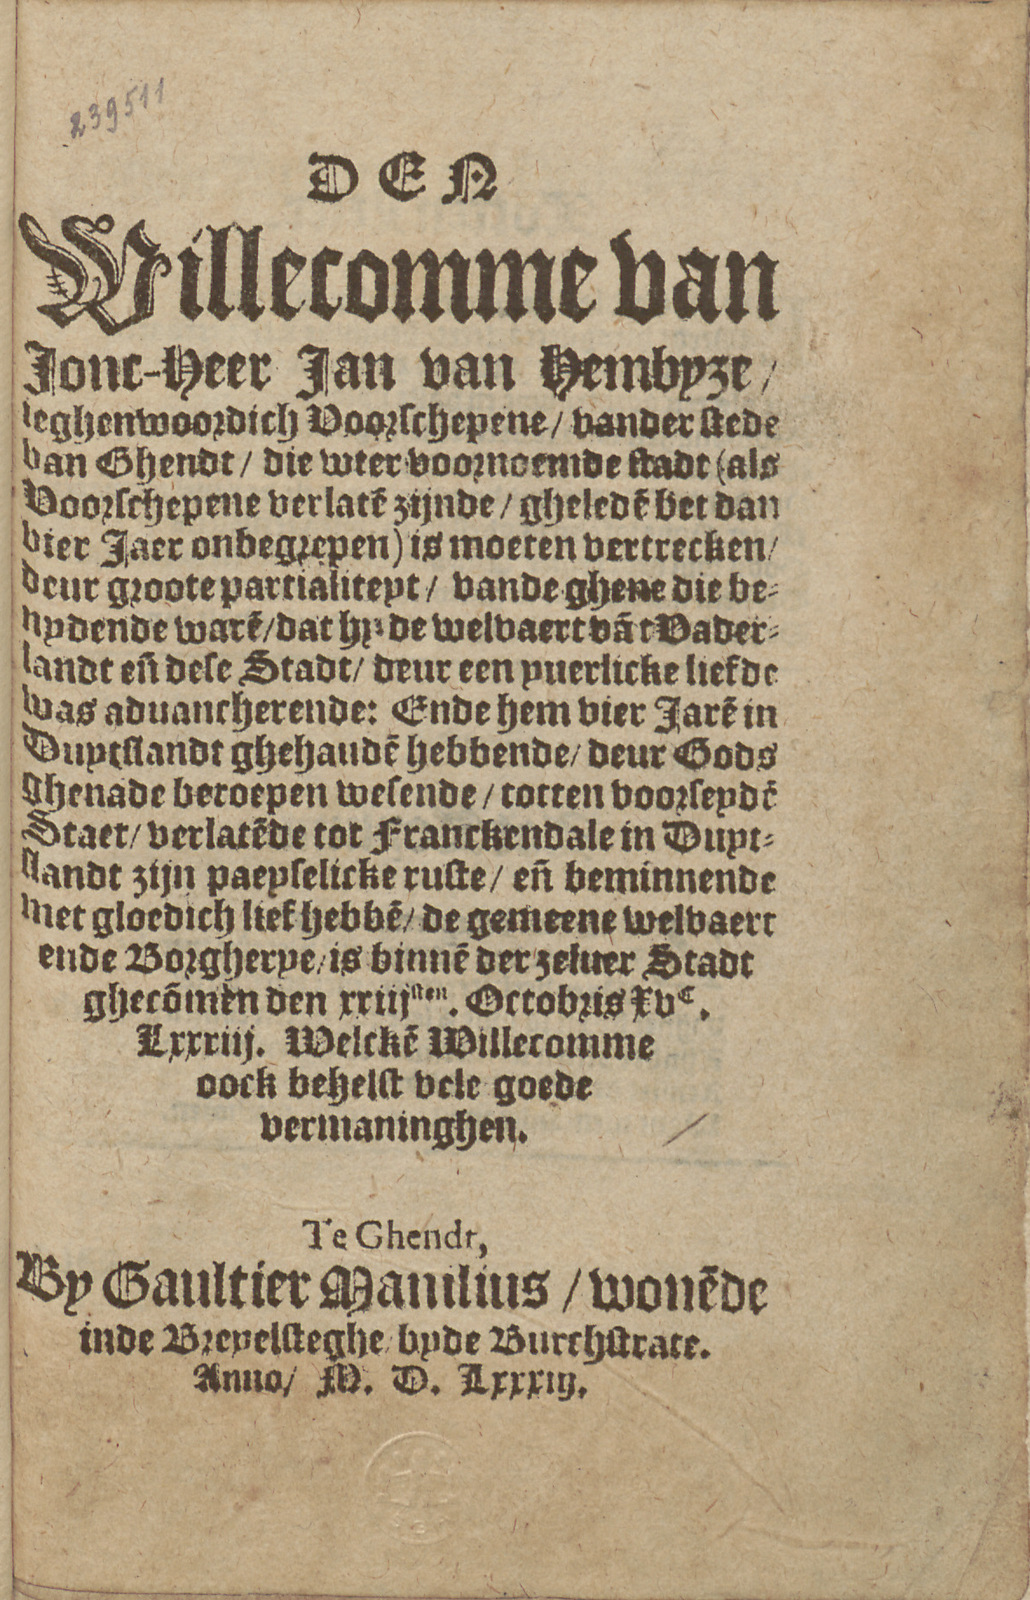 239511
DEN
Willecomme van
Jonc-Heer Jan van Hembyze/
teghenwoordich Voorschepene/ vander stede
van Ghendt/ die wter voornoemde stadt (als
Voorschepene verlatē zijnde/ gheledē bet dan
vier Jaer onbegrepen) is moeten vertrecken/
deur groote partialiteyt/ vande ghene die be-
nydende warē/ dat hy de welvaert vā t Vader-
landt eñ dese Stadt/ deur een puerlicke liefde
was aduancherende: Ende hem vier Jarē in
Duytslandt ghehaudē hebbende/ deur Gods
ghenade beroepen wesende/ totten voorseydē
Staet/ verlatēde tot Franckendale in Duyt-
slandt zijn paeyselicke ruste/ eñ beminnende
met gloedich lief hebbē/ de gemeene welvaert
ende Borgherye/ is binnē der zeluer Stadt
ghecōmen den xxiijsten. Octobris Xvc.
Lxxxiij. Welckē Willecomme
oock behelst vele goede
vermaninghen.
Te Ghendt,
By Gaultier Manilius/ wonēde
inde Breyelsteghe byde Burchstrate.
Anno/ M. D. Lxxxiij.